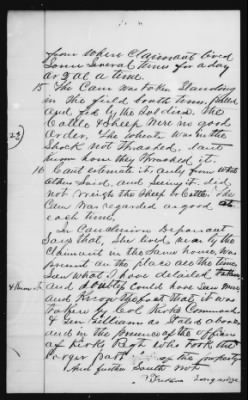 from where Claimant lived
Some several times for a day
or 2 at a time.
15 The Corn was taken Standing
in the field both times, pulled
and fed by the Soldiers. The
Cattle & Sheep were in good
Order. The wheat was in the
Shock not thrashed. dont
know how they thrashed it.
16 Cant estimate it only from what
others Said, and Seeing it did
not weigh the Sheep & Cattle. The
Corn was regarded as good
each time.
In Conclusion Deponent
Says that, She lived near by the
Claimant in the same house, was
present on the place all the time
Seen what I have detailed
and could have Seen more
and Know the fact that it was
taken by Col Kirks Command
& Gen Gilliam as Stated above
and in the presence of the officers
of Kirks Regt who took the
larger part of the property
And further Saith not